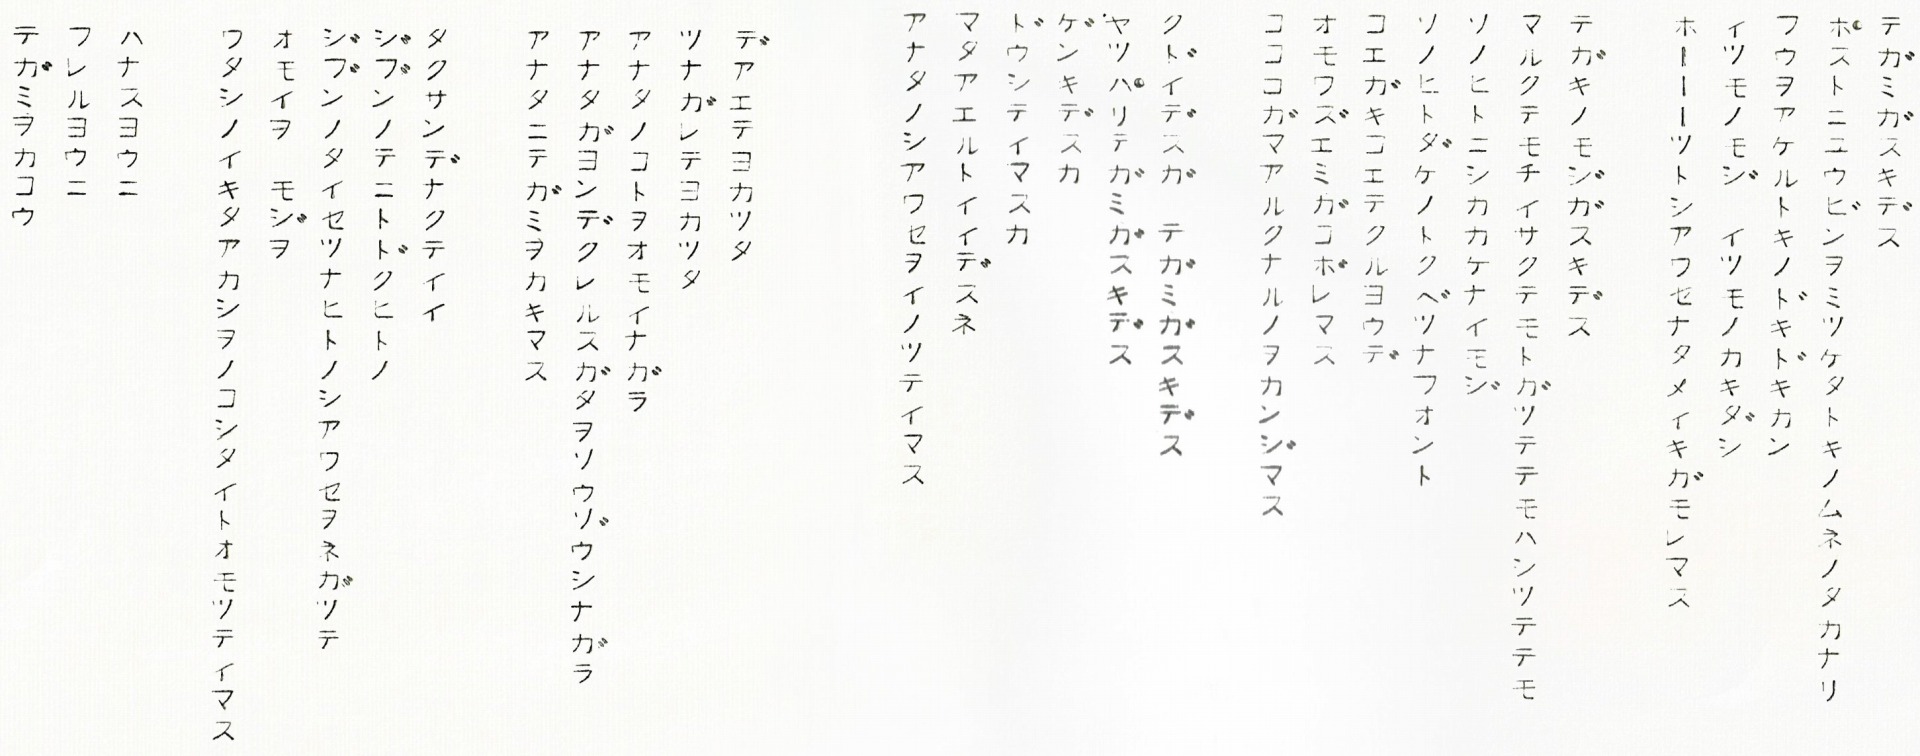 テガミガスキデス
ポストニユウビンヲミツケタトキノムネノタカナリ
フウヲアケルトキノドキドキカン
イツモノモジ　イツモノカキダシ
ホーーーツトシアワセナタメイキガモレマス
テガキノモジガスキデス
マルクテモチイサクテモトガツテテモハシツテテモ
ソノヒトニシカカケナイモジ
ソノヒトダケノトクベツナフオント
コエガキコエテクルヨウデ
オモワズエミガコボレマス
ココロガマアルクナルノヲカンジマス
クドイデスガ　テガミガスキデス
ヤツパリテガミガスキデス
ゲンキデスカ
ドウシテイマスカ
マダアエルトイイデスネ
アナタノシアワセヲイノツテイマス
デアエテヨカツタ
ツナガレテヨカツタ
アナタノコトヲオモイナガラ
アナタガヨンデクレルスガタヲソウゾウシナガラ
アナタニテガミヲカキマス
タクサンデナクテイイ
ジブンノテニトドクヒトノ
ジブンノタイセツナヒトノシアワセヲネガツテ
オモイヲ　モジヲ
ワタシノイキタアカシヲノコシタイトオモツテイマス
ハナスヨウニ
フレルヨウニ
テガミヲカコウ